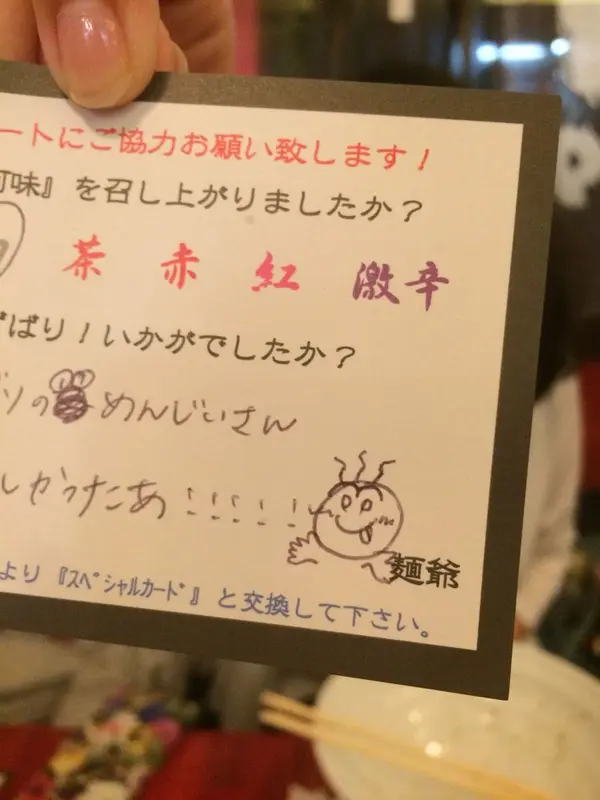 ートにご協力お願い致します！
味』を召し上がりましたか？
茶 赤 紅 激辛
ばり！いかがでしたか？
ソの めんじいさん
しかったあ！！！！！
麺爺
より『ｽﾍﾟｼｬﾙｶｰﾄﾞ』と交換して下さい。